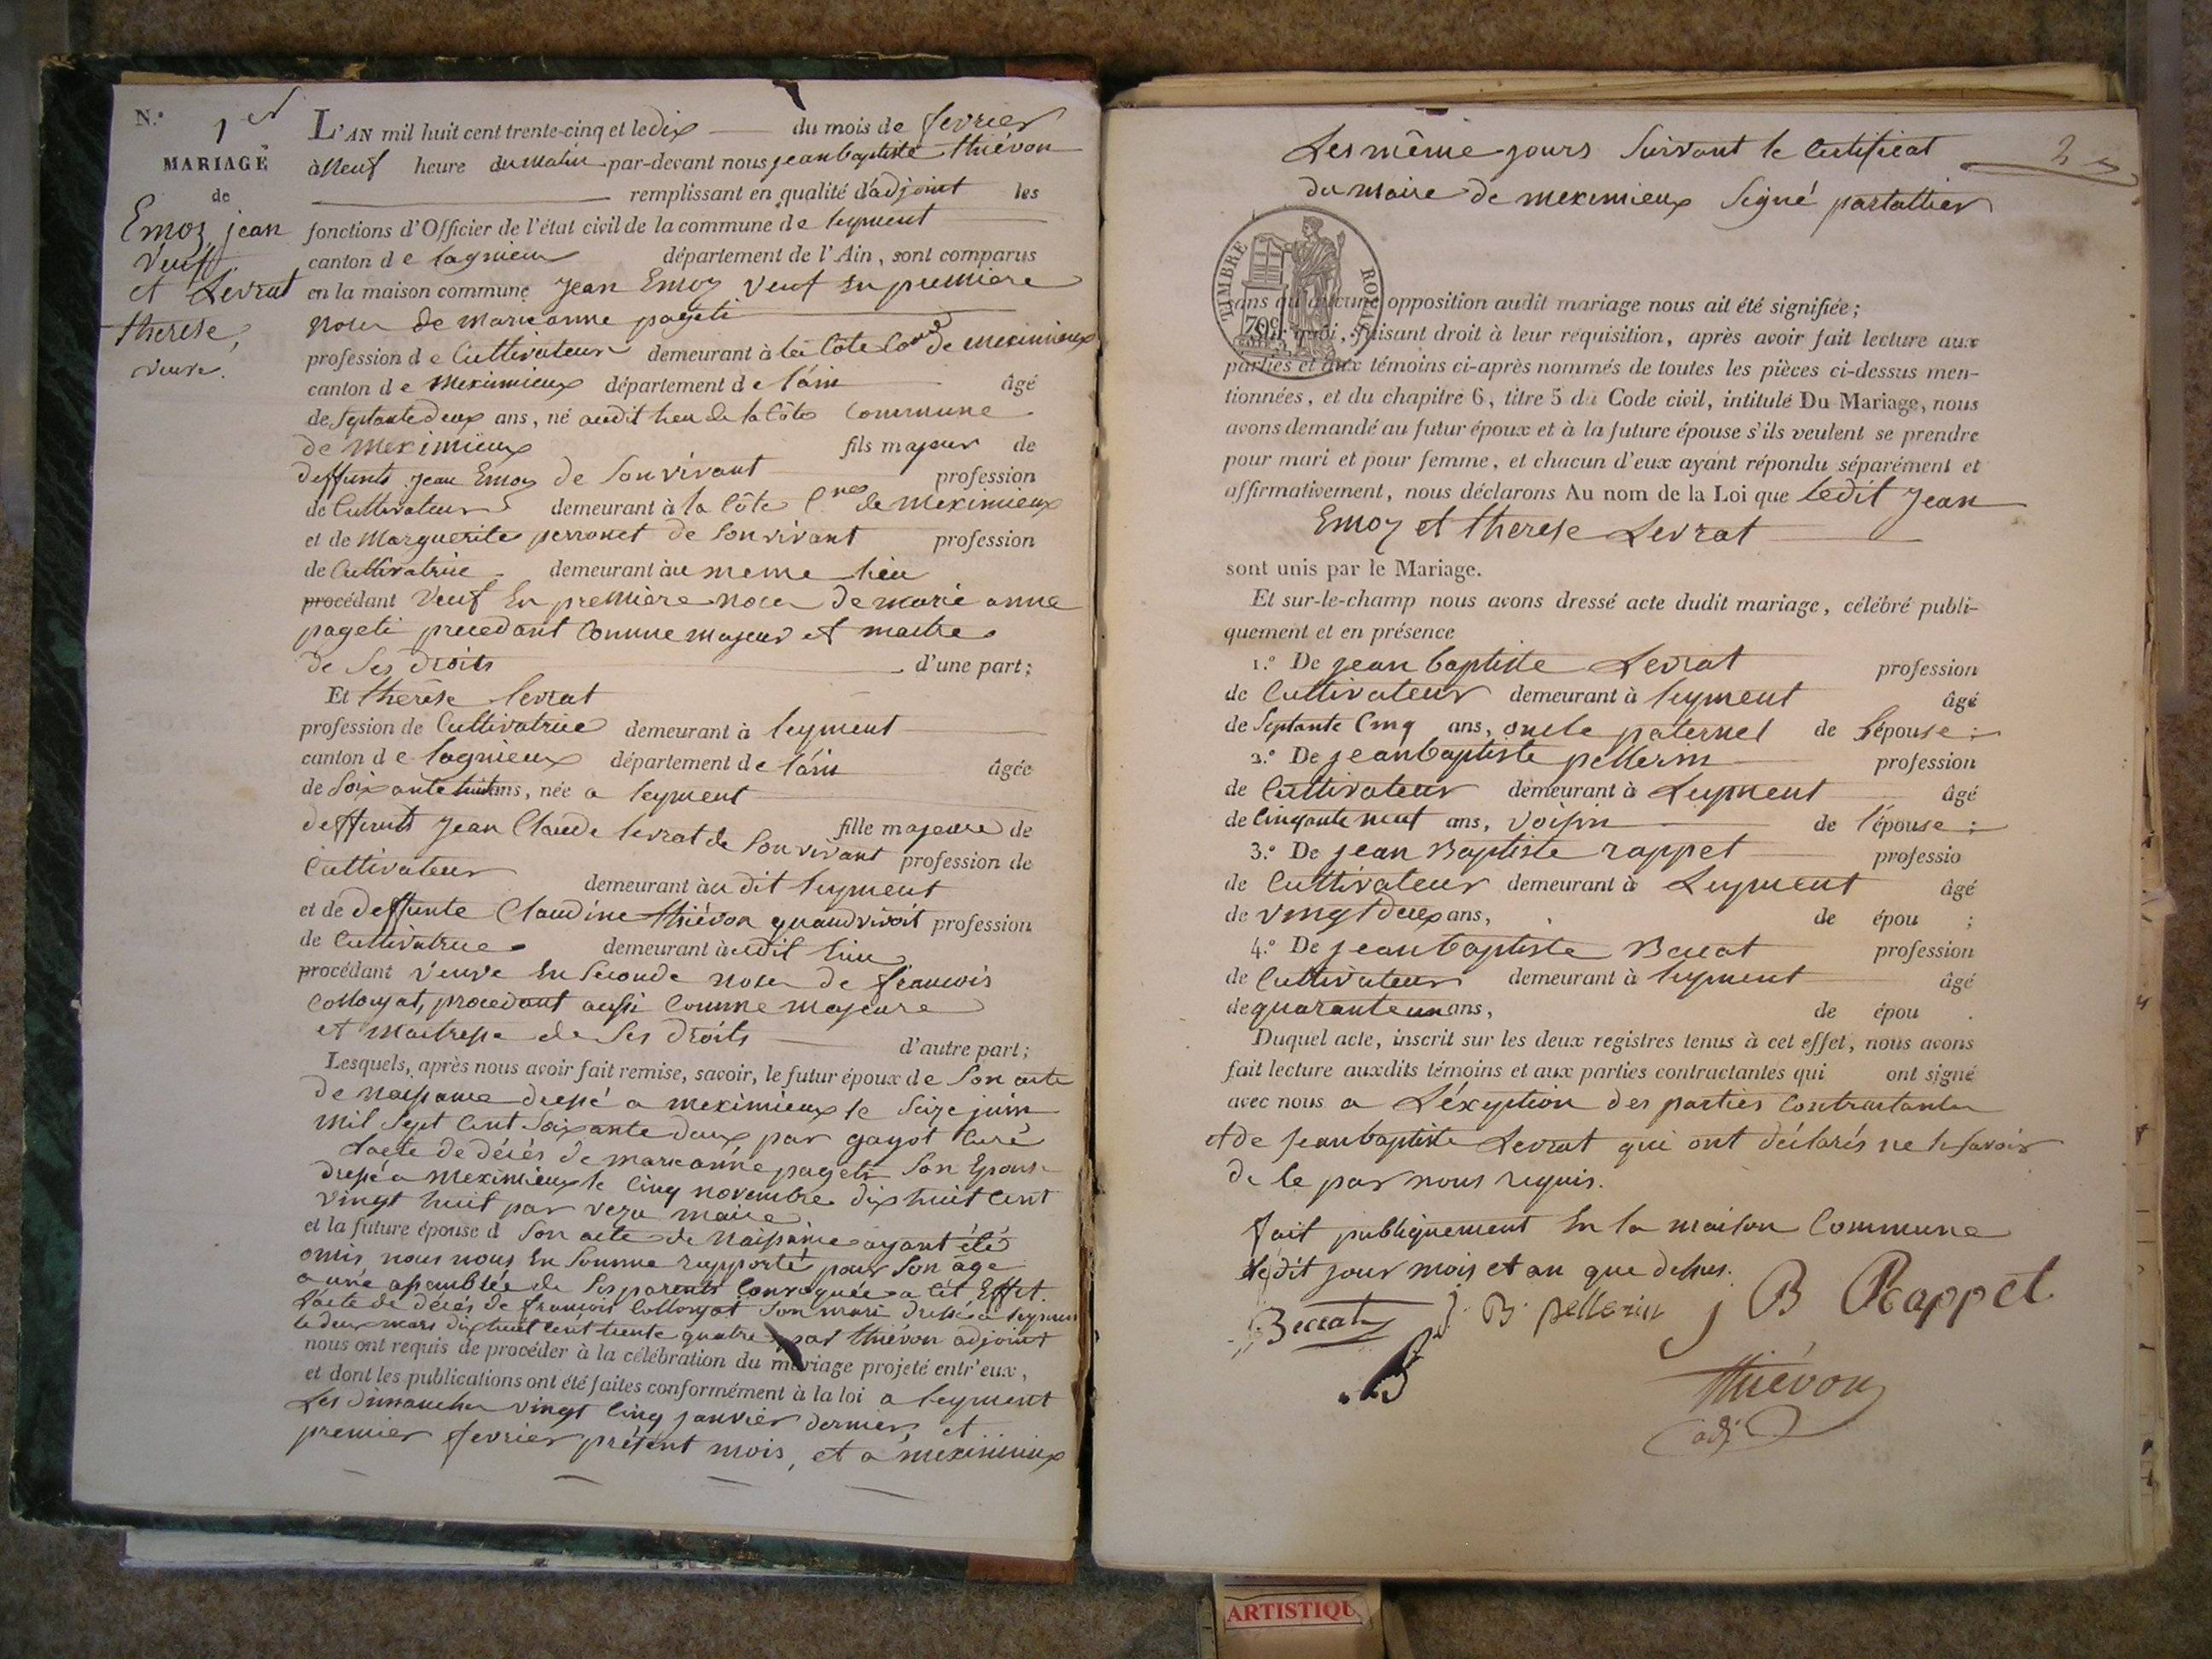 N.º 1er
MARIAGE
de
Emoz jean
veuf
et Levrat
therese,
veuve.
L'AN mil huit cent trente-cinq et le dix du mois de fevrier
à Neuf heure du matin par-devant nous jean baptiste thiévon
remplissant en qualité d'adjoint les
fonctions d'Officier de l'état civil de la commune de leyment
canton de lagnieux département de l'Ain, sont comparus
en la maison commune Jean Emoz veuf en premiere
noces de marieanne pageti
profession de Cultivateur demeurant à la Côte Cone de meximieux
canton de meximieux département de l'ain âgé
de septante deux ans, né audit lieu de la Côte commune
de meximieux fils majeur de
deffunts jean Emoz de son vivant profession
de Cultivateur demeurant à la Côte Cne de meximieux
et de Marguerite perronet de son vivant profession
de Cultivatrice demeurant au meme lieu
procédant veuf en premiere noces de marie anne
pageti precedant comme majeur et maitre
de ses droits d'une part;
Et thérèse levrat
profession de Cultivatrice demeurant à leyment
canton de lagnieux département de l'ain âgée
de soixante huit ans, née a leyment
fille majeure de
deffunts jean Claude levrat de son vivant profession de
Cultivateur
demeurant audit leyment
et de deffunte Claudine thiévon quand vivoit profession
de Cultivatrice demeurant audit lieu
procédant veuve en seconde noces de francois
Collomyat, procedant aussi comme majeure
et maitresse de ses droits d'autre part;
Lesquels, après nous avoir fait remise, savoir, le futur époux de son acte
de naissance dressé a meximieux le seize juin
mil sept cent soixante deux par gayot curé
l'acte de décés de marieanne pageti son Epouse
dressé a meximieux le cinq novembre dix huit cent
vingt huit par vezu maire
et la future épouse d son acte de naissance ayant été
omis nous nous en somme rapporté pour son age
a une assemblée de ses parents convoquée a cet Effet.
l'acte de décés de françois Collomyat son mari dressé a leyment
le deux mars dix huit cent trente quatre par thiévon adjoint
nous ont requis de procéder à la célébration du mariage projeté entr'eux,
et dont les publications ont été faites conformément à la loi a leyment
Les dimanches vingt cinq janvier dernier, et
premier fevrier présent mois, et a meximieux
2
Les même jours suivant le certificat
du maire de meximieux signé portallier
TIMBRE ROYAL
70c
sans qu'aucune opposition audit mariage nous ait été signifiée;
Sur quoi, faisant droit à leur réquisition, après avoir fait lecture aux
parties et aux témoins ci-après nommés de toutes les pièces ci-dessus men-
tionnées, et du chapitre 6, titre 5 du Code civil, intitulé Du Mariage, nous
avons demandé au futur époux et à la future épouse s'ils veulent se prendre
pour mari et pour femme, et chacun d'eux ayant répondu séparément et
affirmativement, nous déclarons Au nom de la Loi que ledit Jean
Emoz et therese Levrat
sont unis par le Mariage.
Et sur-le-champ nous avons dressé acte dudit mariage, célébré publi-
quement et en présence
1.º De jean baptiste Levrat profession
de Cultivateur demeurant à leyment âgé
de septante Cinq ans, oncle paternel de l'épouse;
2.º De jean baptiste pellerin profession
de Cultivateur demeurant à Leyment âgé
de cinqante neuf ans, voisin de l'épouse;
3.º De jean Baptiste rappet professio
de Cultivateur demeurant à Leyment âgé
de vingt deux ans, de épou ;
4.º De jean baptiste Beccat profession
de Cultivateur demeurant à leyment âgé
de quarante un ans, de épou .
Duquel acte, inscrit sur les deux registres tenus à cet effet, nous avons
fait lecture auxdits témoins et aux parties contractantes qui ont signé
avec nous a L'éxception des parties contractantes
et de Jean baptiste Levrat qui ont déclarés ne le savoir
de ce par nous requis.
fait publiquement en la maison commune
ledit jour mois et an que dessus.
Beccat J. B. pellerin j B Rappet
Thiévon
adj.
ARTISTIQU